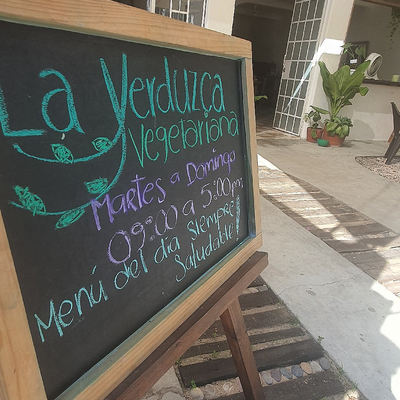 La Verduzca
Vegetariana
Martes a Domingo
09:00 a 5:00 pm
Menú del día siempre
Saludable!